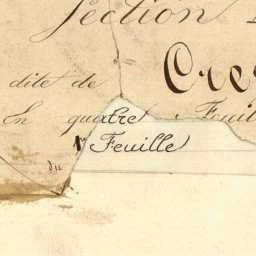 Section
dite de Cre
En quatre Feuil
1re Feuille
du